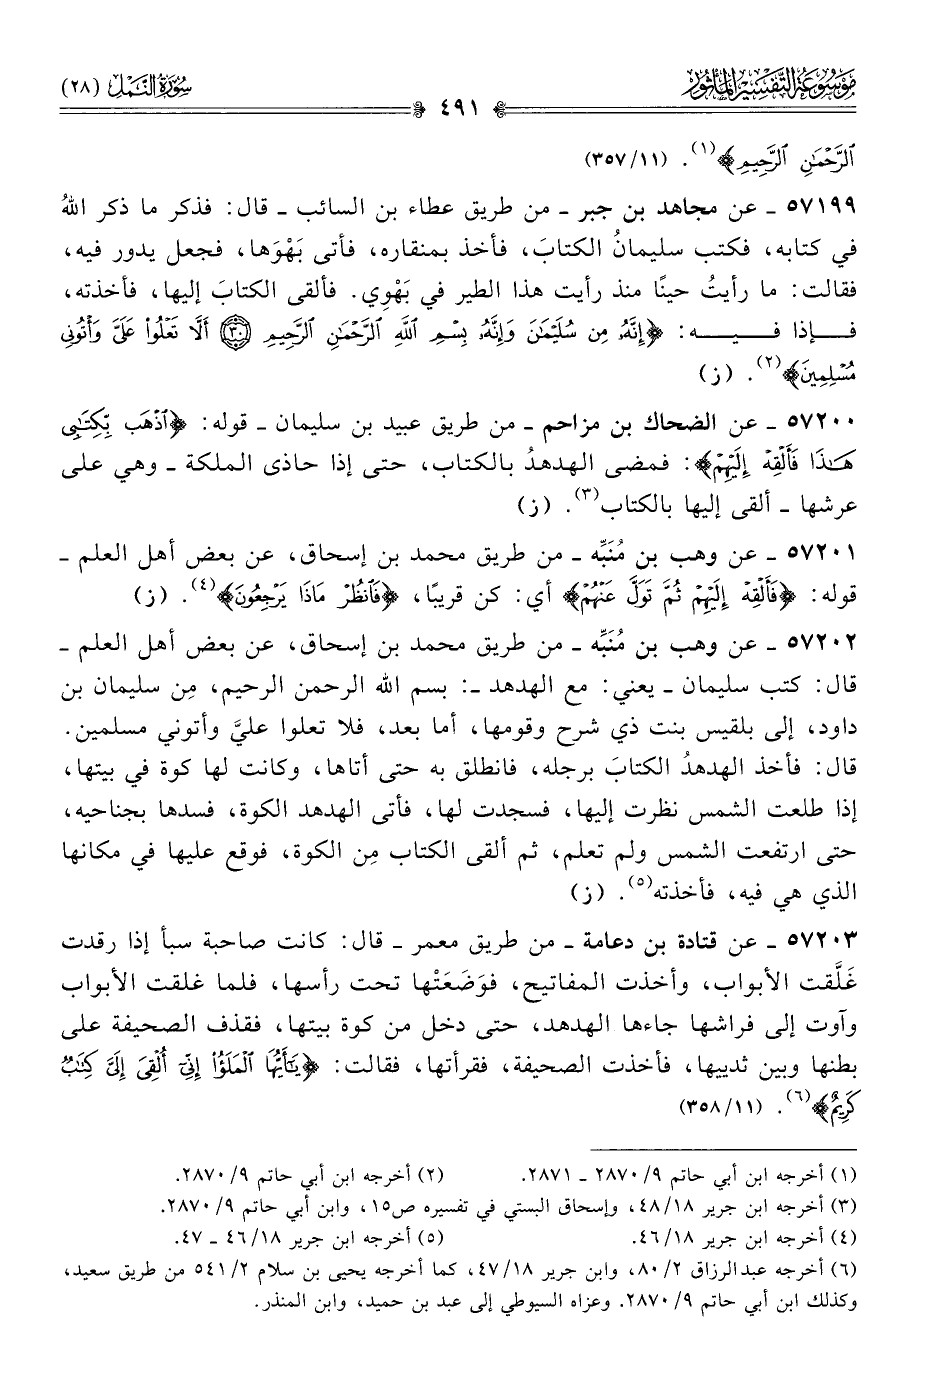 مَوْسُوعَةُ التَّفْسِيرِ المَأْثُورِ
سُورَةُ النَّمْل (٢٨)
٤٩١
ٱلرَّحْمَٰنِ ٱلرَّحِيمِ﴾(١). (٣٥٧/١١)
٥٧١٩٩ ـ عن مجاهد بن جبر ـ من طريق عطاء بن السائب ـ قال: فذكر ما ذكر اللهُ
في كتابه، فكتب سليمانُ الكتابَ، فأخذ بمنقاره، فأتى بَهْوَها، فجعل يدور فيه،
فقالت: ما رأيتُ حينًا منذ رأيت هذا الطير في بَهْوِي. فألقى الكتابَ إليها، فأخذته،
فـإذا فـيـه: ﴿إِنَّهُۥ مِن سُلَيْمَٰنَ وَإِنَّهُۥ بِسْمِ ٱللَّهِ ٱلرَّحْمَٰنِ ٱلرَّحِيمِ ۝٣٠ أَلَّا تَعْلُوا۟ عَلَىَّ وَأْتُونِى
مُسْلِمِينَ﴾(٢). (ز)
٥٧٢٠٠ ـ عن الضحاك بن مزاحم ـ من طريق عبيد بن سليمان ـ قوله: ﴿ٱذْهَب بِّكِتَٰبِى
هَٰذَا فَأَلْقِهْ إِلَيْهِمْ﴾: فمضى الهدهدُ بالكتاب، حتى إذا حاذى الملكة ـ وهي على
عرشها ـ ألقى إليها بالكتاب(٣). (ز)
٥٧٢٠١ ـ عن وهب بن مُنَبِّه ـ من طريق محمد بن إسحاق، عن بعض أهل العلم ـ
قوله: ﴿فَأَلْقِهْ إِلَيْهِمْ ثُمَّ تَوَلَّ عَنْهُمْ﴾ أي: كن قريبًا، ﴿فَٱنظُرْ مَاذَا يَرْجِعُونَ﴾(٤). (ز)
٥٧٢٠٢ ـ عن وهب بن مُنَبِّه ـ من طريق محمد بن إسحاق، عن بعض أهل العلم ـ
قال: كتب سليمان ـ يعني: مع الهدهد ـ: بسم الله الرحمن الرحيم، مِن سليمان بن
داود، إلى بلقيس بنت ذي شرح وقومها، أما بعد، فلا تعلوا عليَّ وأتوني مسلمين.
قال: فأخذ الهدهدُ الكتابَ برجله، فانطلق به حتى أتاها، وكانت لها كوة في بيتها،
إذا طلعت الشمس نظرت إليها، فسجدت لها، فأتى الهدهد الكوة، فسدها بجناحيه،
حتى ارتفعت الشمس ولم تعلم، ثم ألقى الكتاب مِن الكوة، فوقع عليها في مكانها
الذي هي فيه، فأخذته(٥). (ز)
٥٧٢٠٣ ـ عن قتادة بن دعامة ـ من طريق معمر ـ قال: كانت صاحبة سبأ إذا رقدت
غَلَّقت الأبواب، وأخذت المفاتيح، فوَضَعَتْها تحت رأسها، فلما غلقت الأبواب
وآوت إلى فراشها جاءها الهدهد، حتى دخل من كوة بيتها، فقذف الصحيفة على
بطنها وبين ثدييها، فأخذت الصحيفة، فقرأتها، فقالت: ﴿يَٰٓأَيُّهَا ٱلْمَلَؤُا۟ إِنِّىٓ أُلْقِىَ إِلَىَّ كِتَٰبٌ
كَرِيمٌ﴾(٦). (٣٥٨/١١)
(١) أخرجه ابن أبي حاتم ٩/ ٢٨٧٠ ـ ٢٨٧١. (٢) أخرجه ابن أبي حاتم ٩/ ٢٨٧٠.
(٣) أخرجه ابن جرير ١٨/ ٤٨، وإسحاق البستي في تفسيره ص١٥، وابن أبي حاتم ٩/ ٢٨٧٠.
(٤) أخرجه ابن جرير ١٨/ ٤٦. (٥) أخرجه ابن جرير ١٨/ ٤٦ ـ ٤٧.
(٦) أخرجه عبدالرزاق ٢/ ٨٠، وابن جرير ١٨/ ٤٧، كما أخرجه يحيى بن سلام ٢/ ٥٤١ من طريق سعيد،
وكذلك ابن أبي حاتم ٩/ ٢٨٧٠. وعزاه السيوطي إلى عبد بن حميد، وابن المنذر.